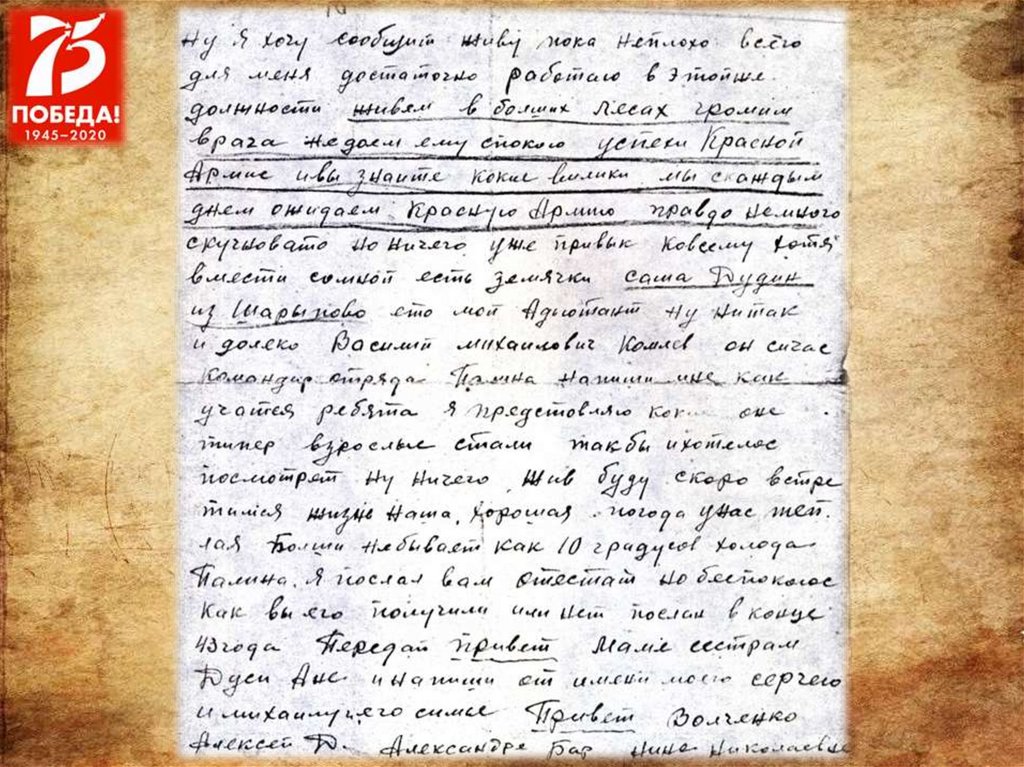 75
ПОБЕДА!
1945–2020
Ну я хочу сообщит живу пока неплохо всего
для меня достаточно работаю в этойже
должности живем в болших лесах громим
врага недаем ему спокою успехи Красной
Армие ивы знаите какие вилики мы скаждым
днем ожидаем Красную Армию правдо немного
скучновато но ничего уже привык ковсему хотя
вмести сомной есть землячки саша Дудин
из Шарыпово ето мой Адютант ну нитак
и долеко Василий михаилович Комлев он сичас
Командир отряда Палина напиши мне как
учатся ребята я предстовляю какие оне
типер взрослые стали такбы ихотелос
посмотрет ну ничего жив буду скоро встре
тимся жизнь наша хорошая погода унас теп
лая Болши небывает как 10 градусов холода
Палина я послал вам отестат но беспокоюс
Как вы его получили или нет послан в конце
43 года Передай привет Маме сестрам
Дуси Ане инапиши от имени моего сергею
и михаилу иего симье Привет Волченко
Алексей Д. Александре Бар Нине Николаевне